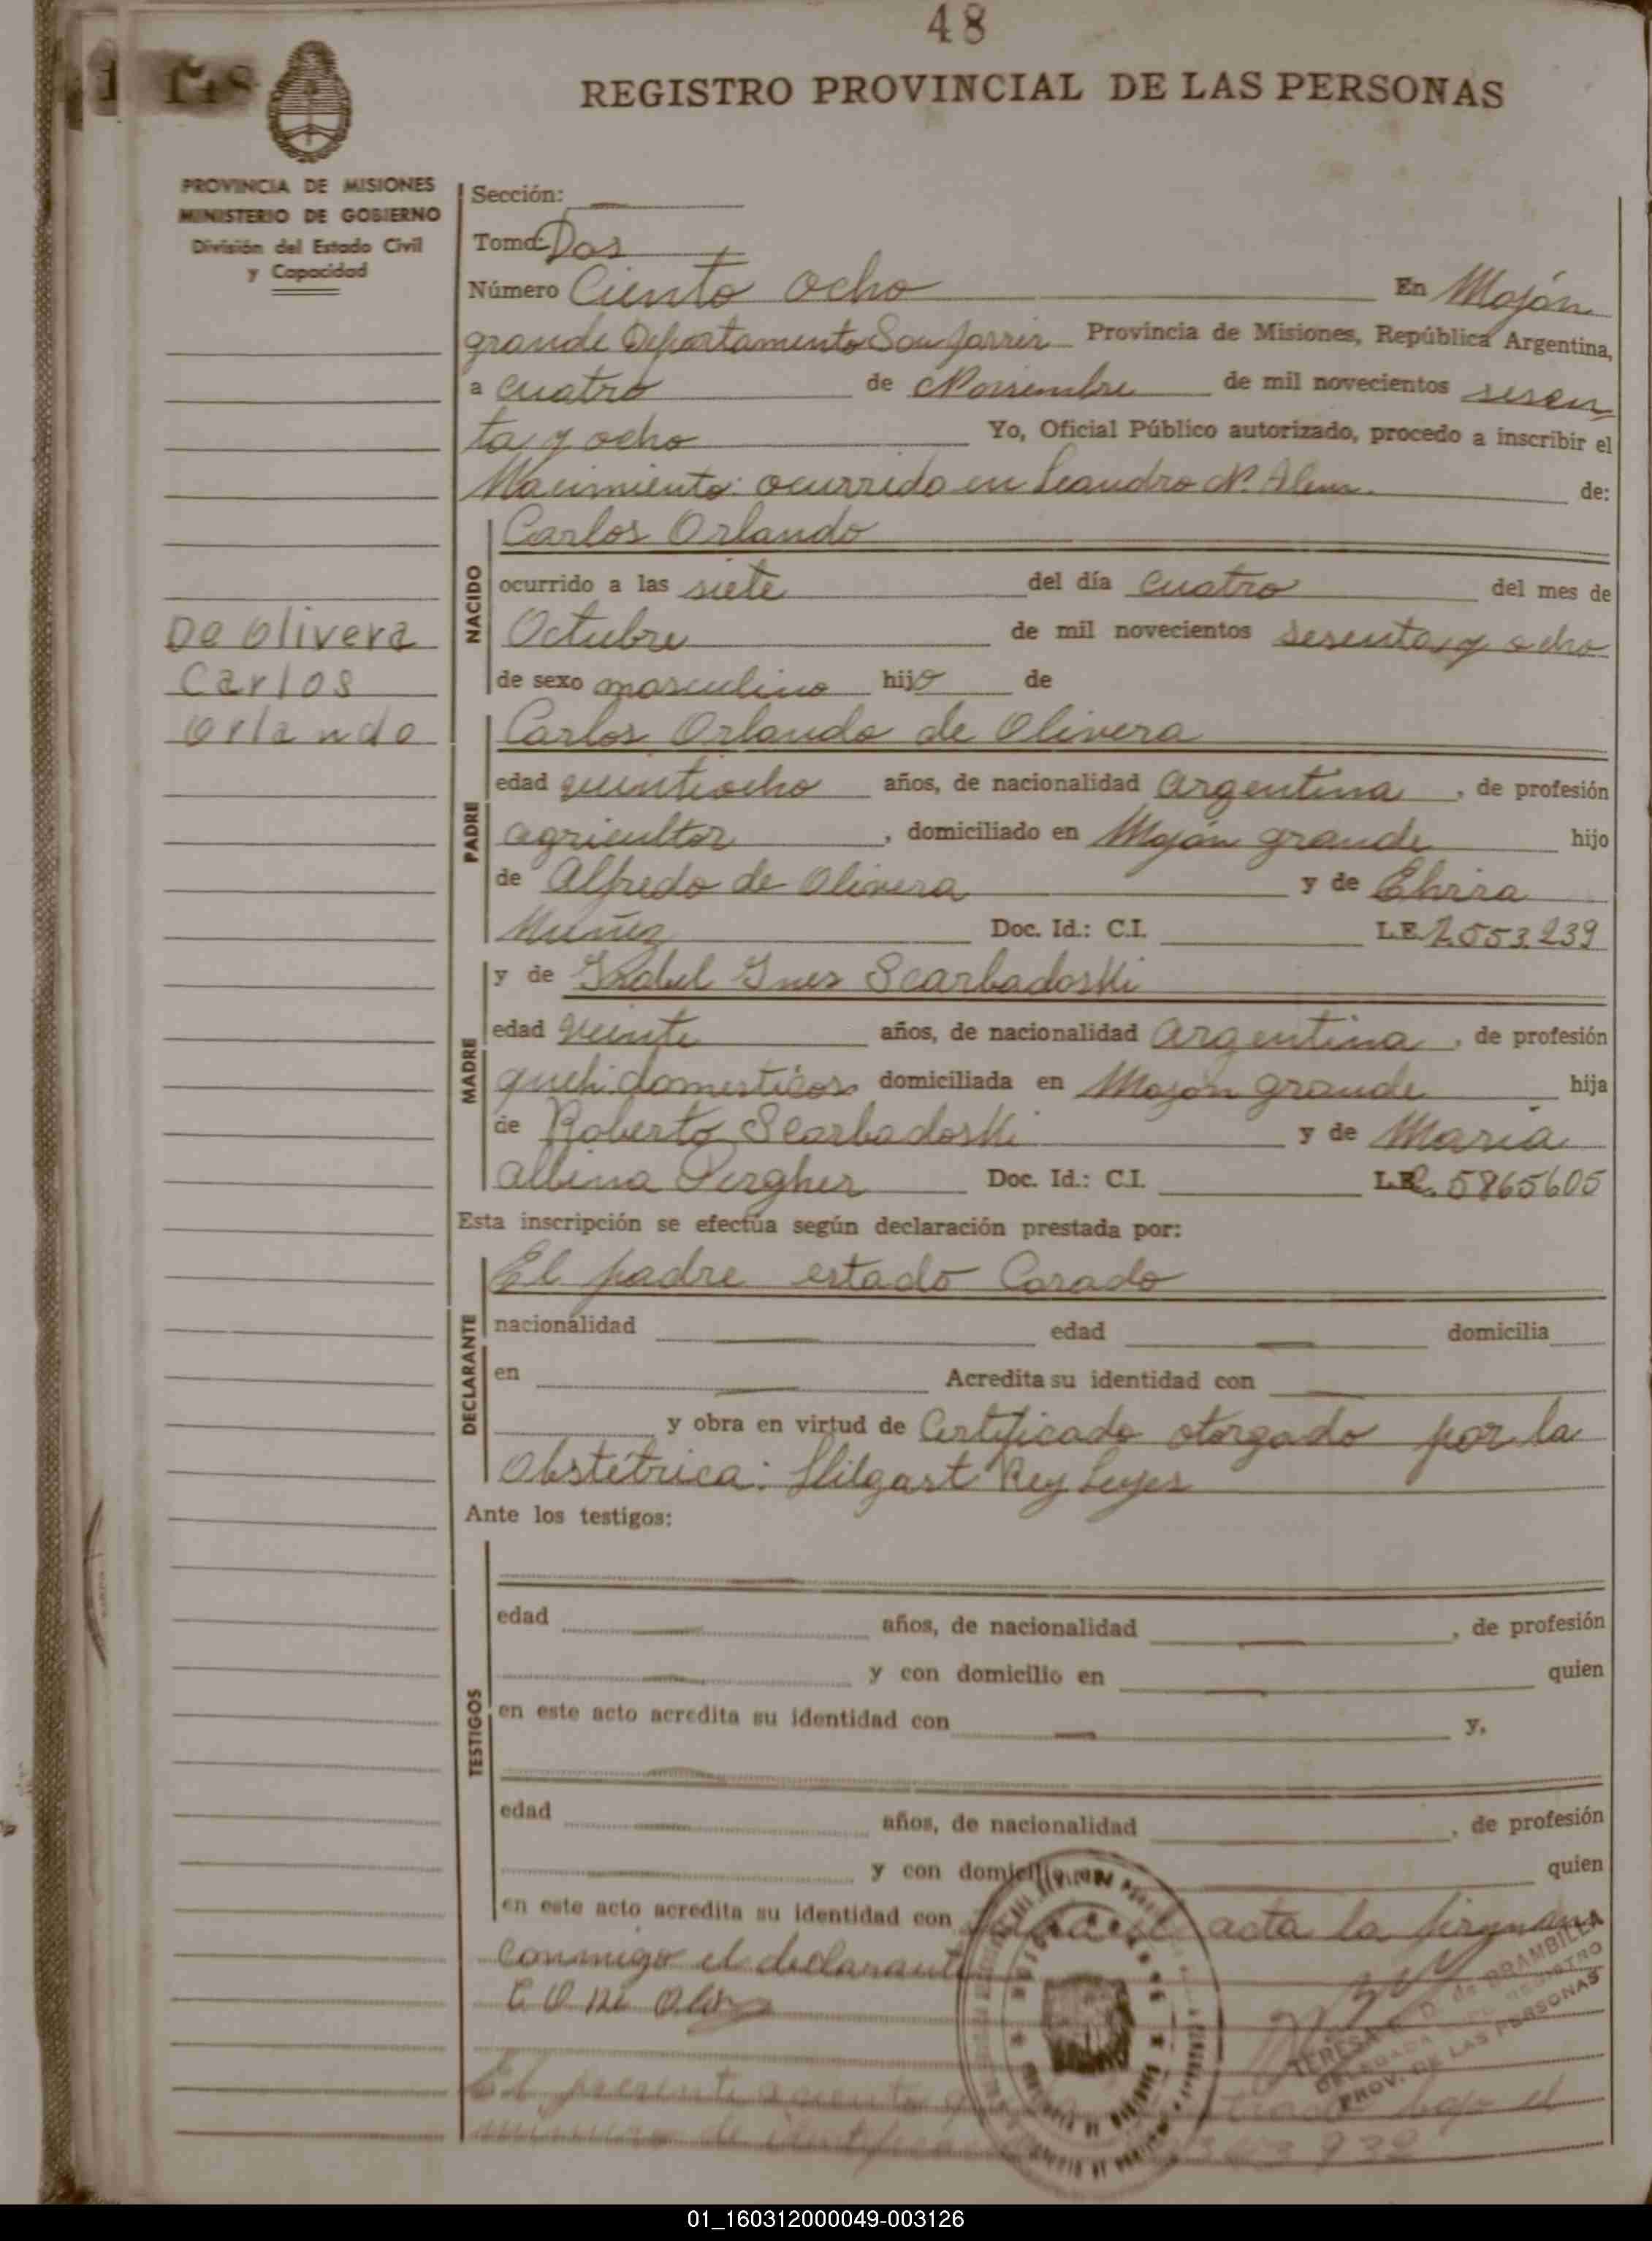 48
REGISTRO PROVINCIAL DE LAS PERSONAS
PROVINCIA DE MISIONES
MINISTERIO DE GOBIERNO
División del Estado Civil
y Capacidad
Sección:
Tomo: Dos
Número Ciento ocho En Mojón
grande Departamento San Javier Provincia de Misiones, República Argentina,
a cuatro de Noviembre de mil novecientos sesen
ta y ocho Yo, Oficial Público autorizado, procedo a inscribir el
Nacimiento: ocurrido en Leandro N. Alem. de:
NACIDO
Carlos Orlando
ocurrido a las siete del día cuatro del mes de
Octubre de mil novecientos sesenta y ocho
de sexo masculino hijo de
De Olivera
Carlos
Orlando
PADRE
Carlos Orlando de Olivera
edad veintiocho años, de nacionalidad Argentina, de profesión
agricultor, domiciliado en Mojón grande hijo
de Alfredo de Olivera y de
Muñez Doc. Id.: C.I. L.E. 7553.239
MADRE
y de Isabel Ines Scarbadoski
edad veinte años, de nacionalidad Argentina, de profesión
queh. domesticos domiciliada en Mojón grande hija
de Roberto Scarbadoski y de Maria
Albina Pergher Doc. Id.: C.I. 5865605
Esta inscripción se efectúa según declaración prestada por:
DECLARANTE
El padre estado Casado
nacionalidad edad domicilia
en Acredita su identidad con
y obra en virtud de Certificado otorgado por la
Obstétrica: Hilgart Rey Leyes
Ante los testigos:
TESTIGOS
edad años, de nacionalidad , de profesión
y con domicilio en quien
en este acto acredita su identidad con y,
edad años, de nacionalidad , de profesión
y con domicilio en quien
en este acto acredita su identidad con acta la firman
conmigo el declarante
TERESA D. de BRAMBILLA
DELEGADA REGISTRO
PROV. DE LAS PERSONAS
El presente bajo el
número de
01_160312000049-003126